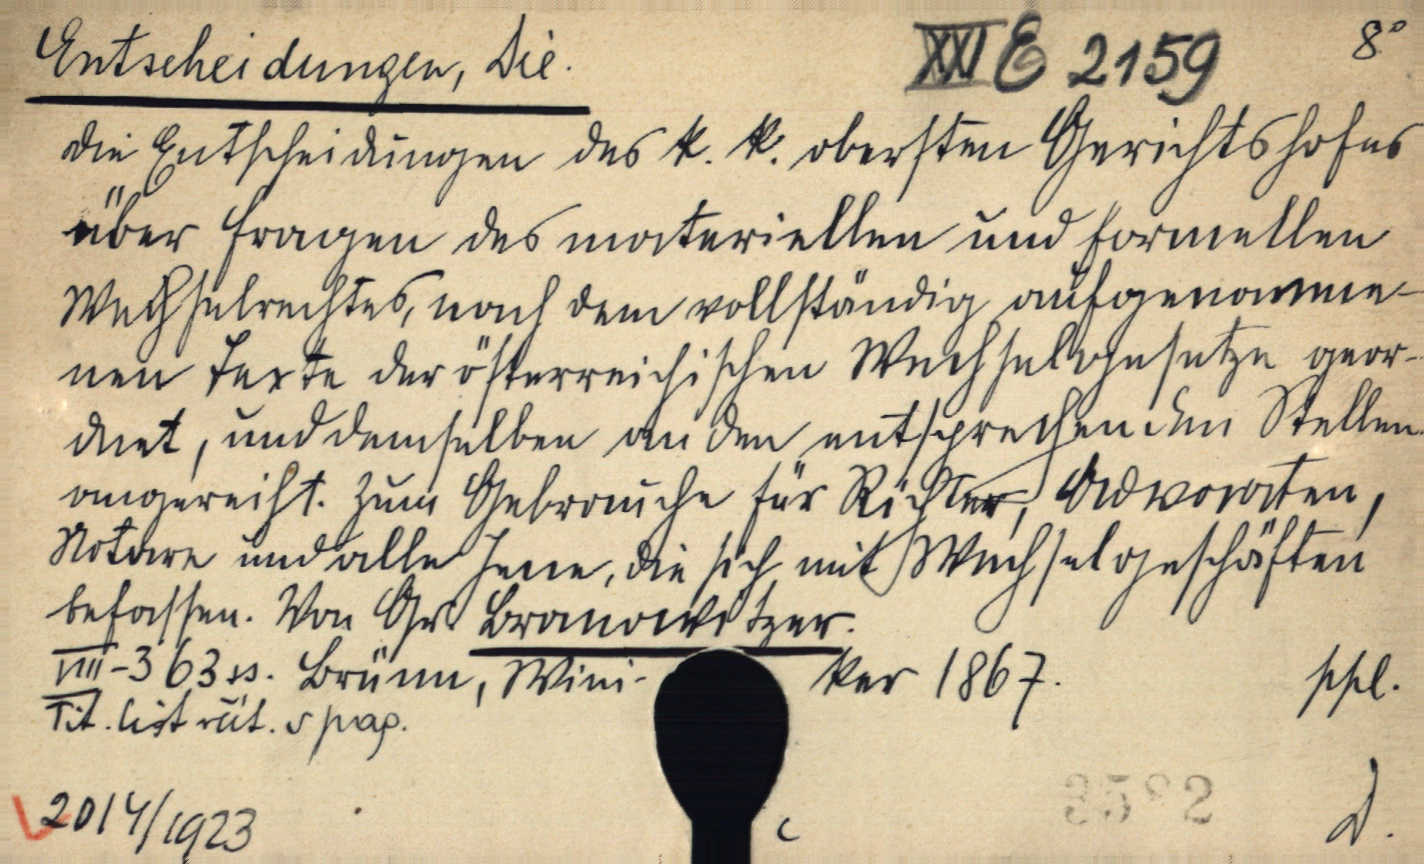 Entscheidungen, Die.
XXI E 2159
8°
Die Entscheidungen des k. k. obersten Gerichtshofes
über Fragen des materiellen und formellen
Wechselrechtes, nach dem vollständig aufgenomme-
nen Texte der österreichischen Wechselgesetze geor-
dnet, und demselben an den entsprechenden Stellen
angereiht. Zum Gebrauche für Richter, Advocaten,
Notare und alle Jene, die sich mit Wechselgeschäften
befassen. Von Gr. Branowitzer.
VIII-363 ss. Brünn, Wini- ker 1867.
ppl.
Tit. list rüt. s pap.
2014/1923
c
3582
D.